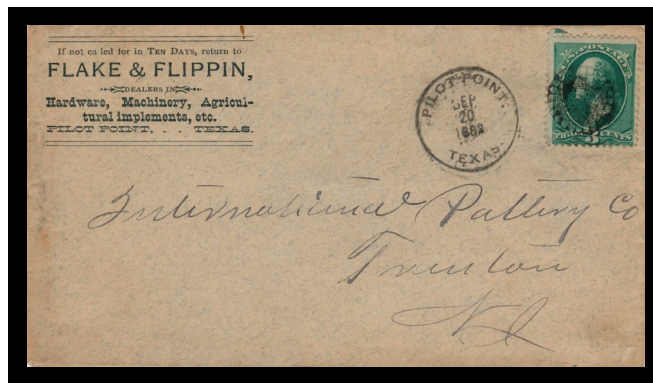 If not called for in TEN DAYS, return to
FLAKE & FLIPPIN,
DEALERS IN
Hardware, Machinery, Agricul-
tural implements, etc.
PILOT POINT, . . . TEXAS.
PILOT POINT.
SEP
20
1882
TEXAS.
U.S. POSTAGE
THREE 3 CENTS
International Pottery Co
Trenton
NJ